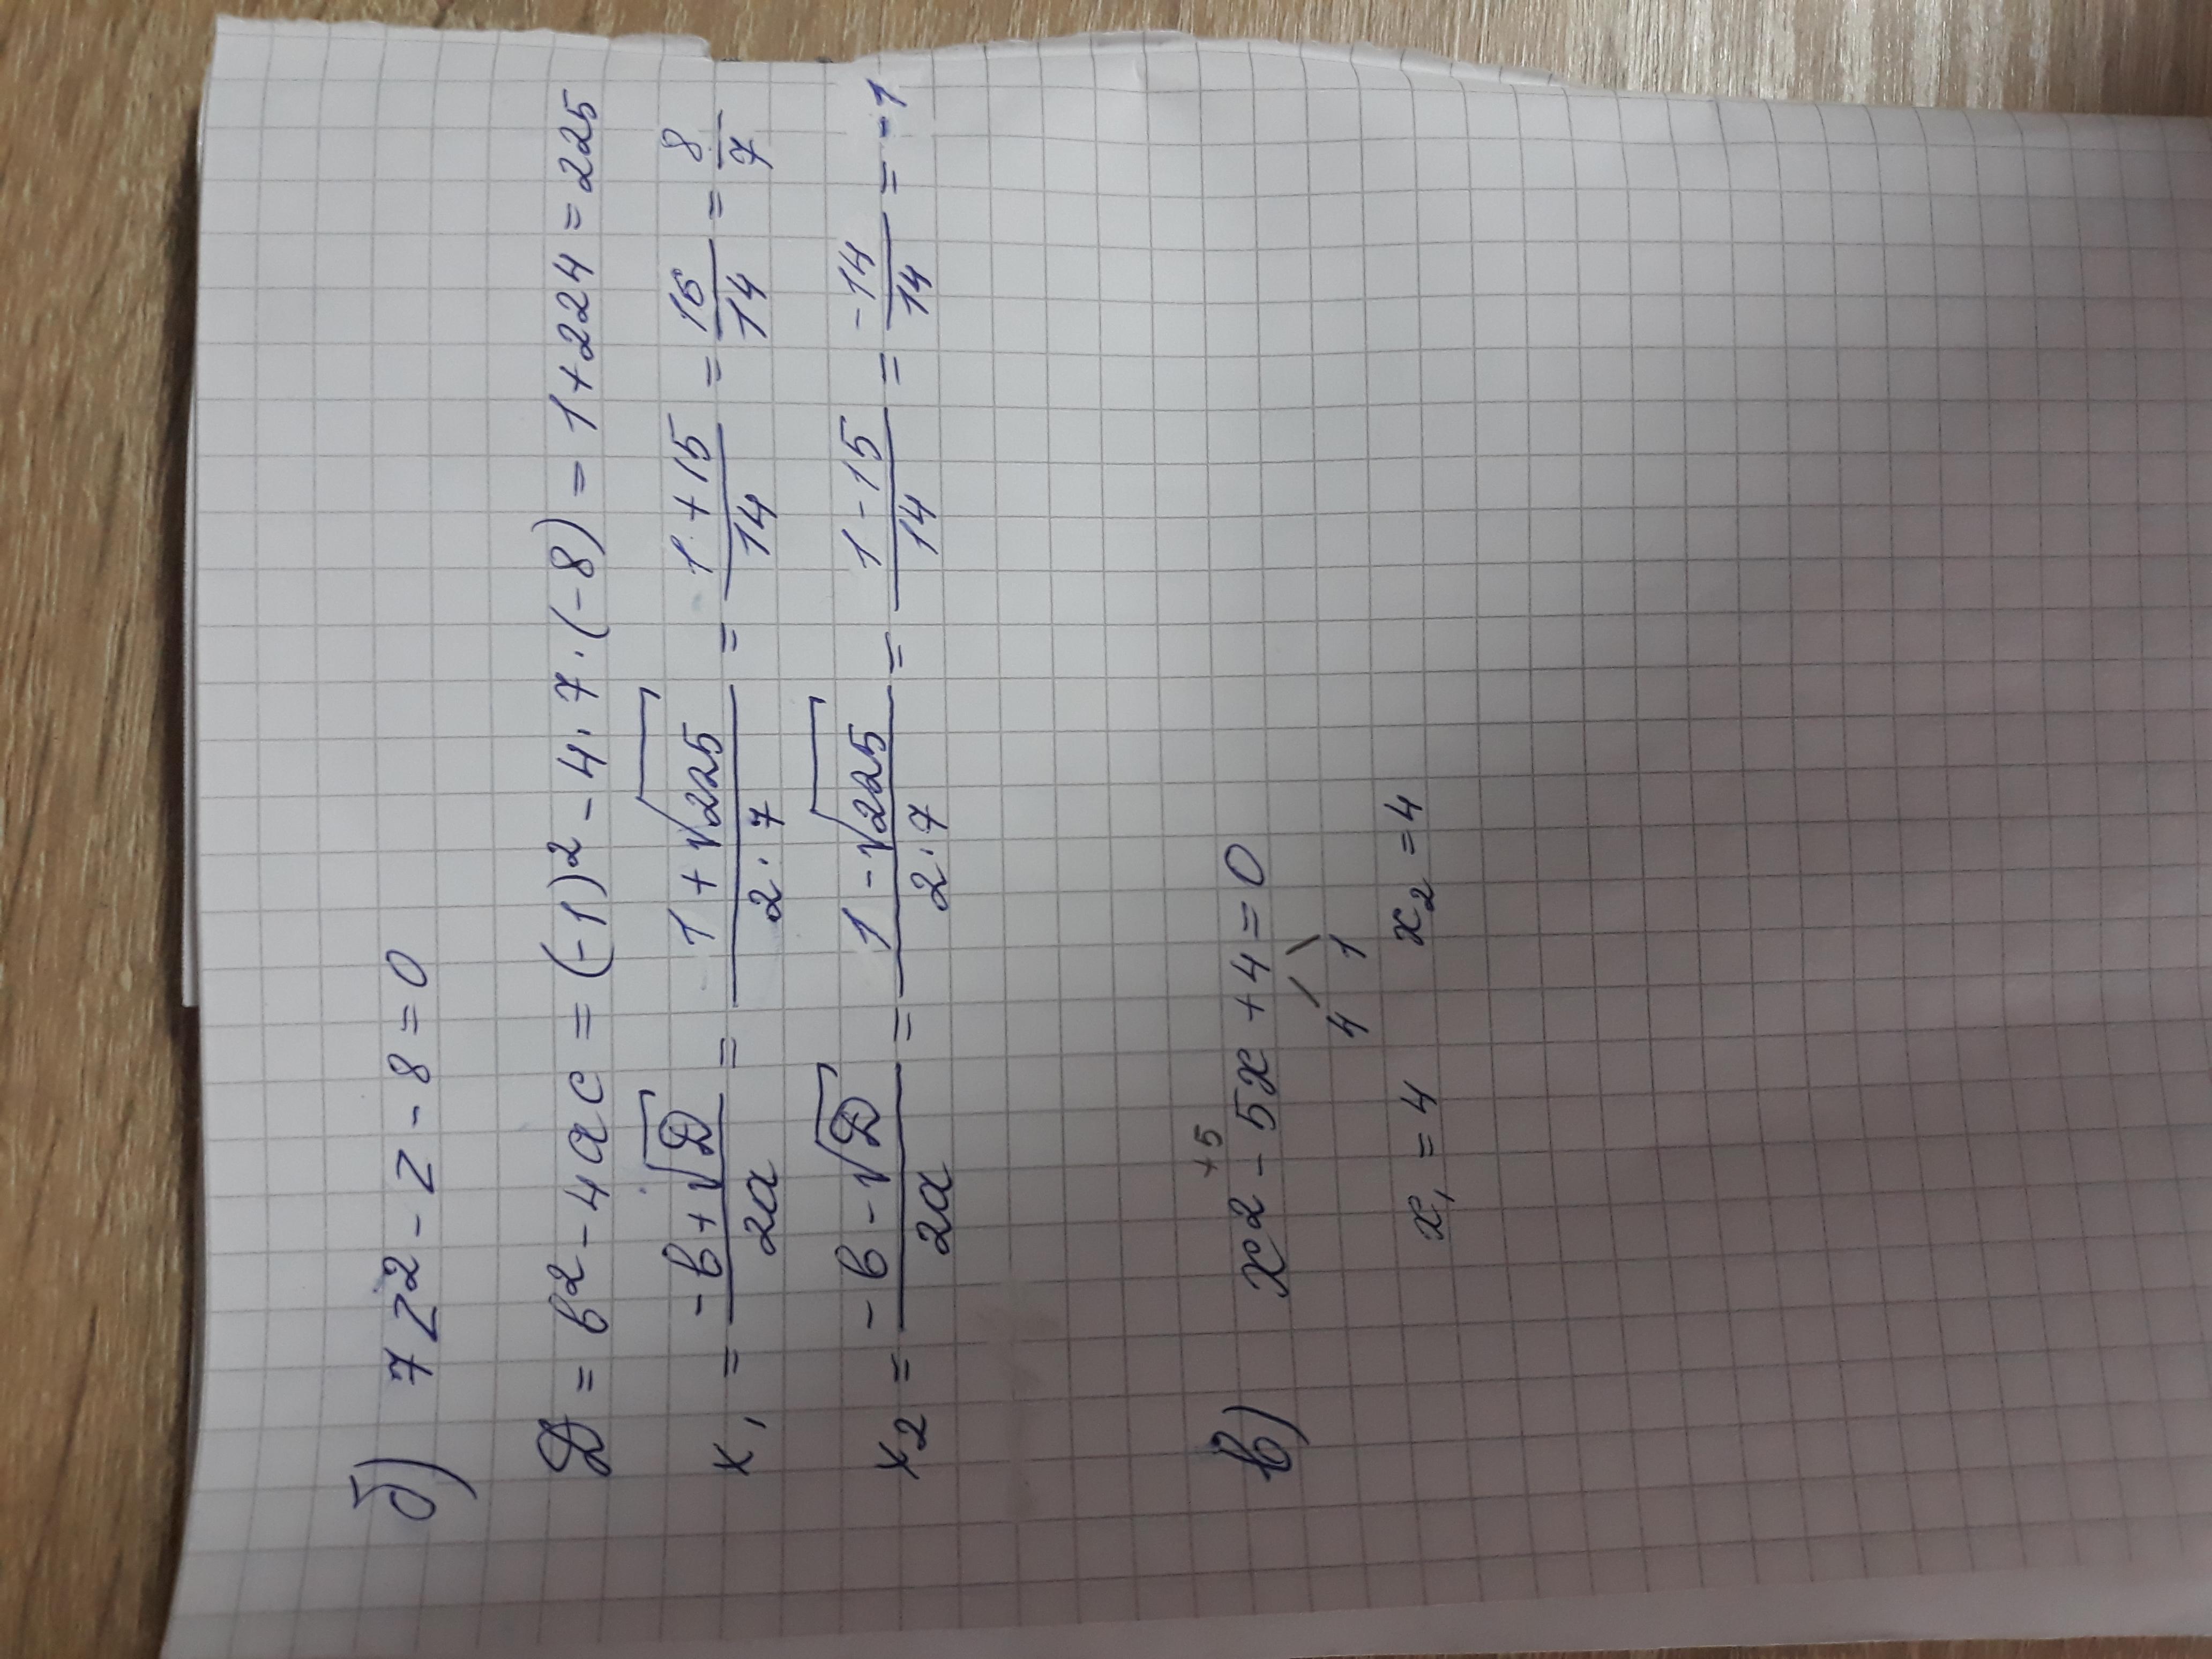 б) 7z² - z - 8 = 0
D = b² - 4ac = (-1)² - 4·7·(-8) = 1 + 224 = 225
x₁ = (-b + √D)/(2a) = (1 + √225)/(2·7) = (1 + 15)/14 = 16/14 = 8/7
x₂ = (-b - √D)/(2a) = (1 - √225)/(2·7) = (1 - 15)/14 = -14/14 = -1
+5
в) x² - 5x + 4 = 0
4 1
x₁ = 4 x₂ = 4